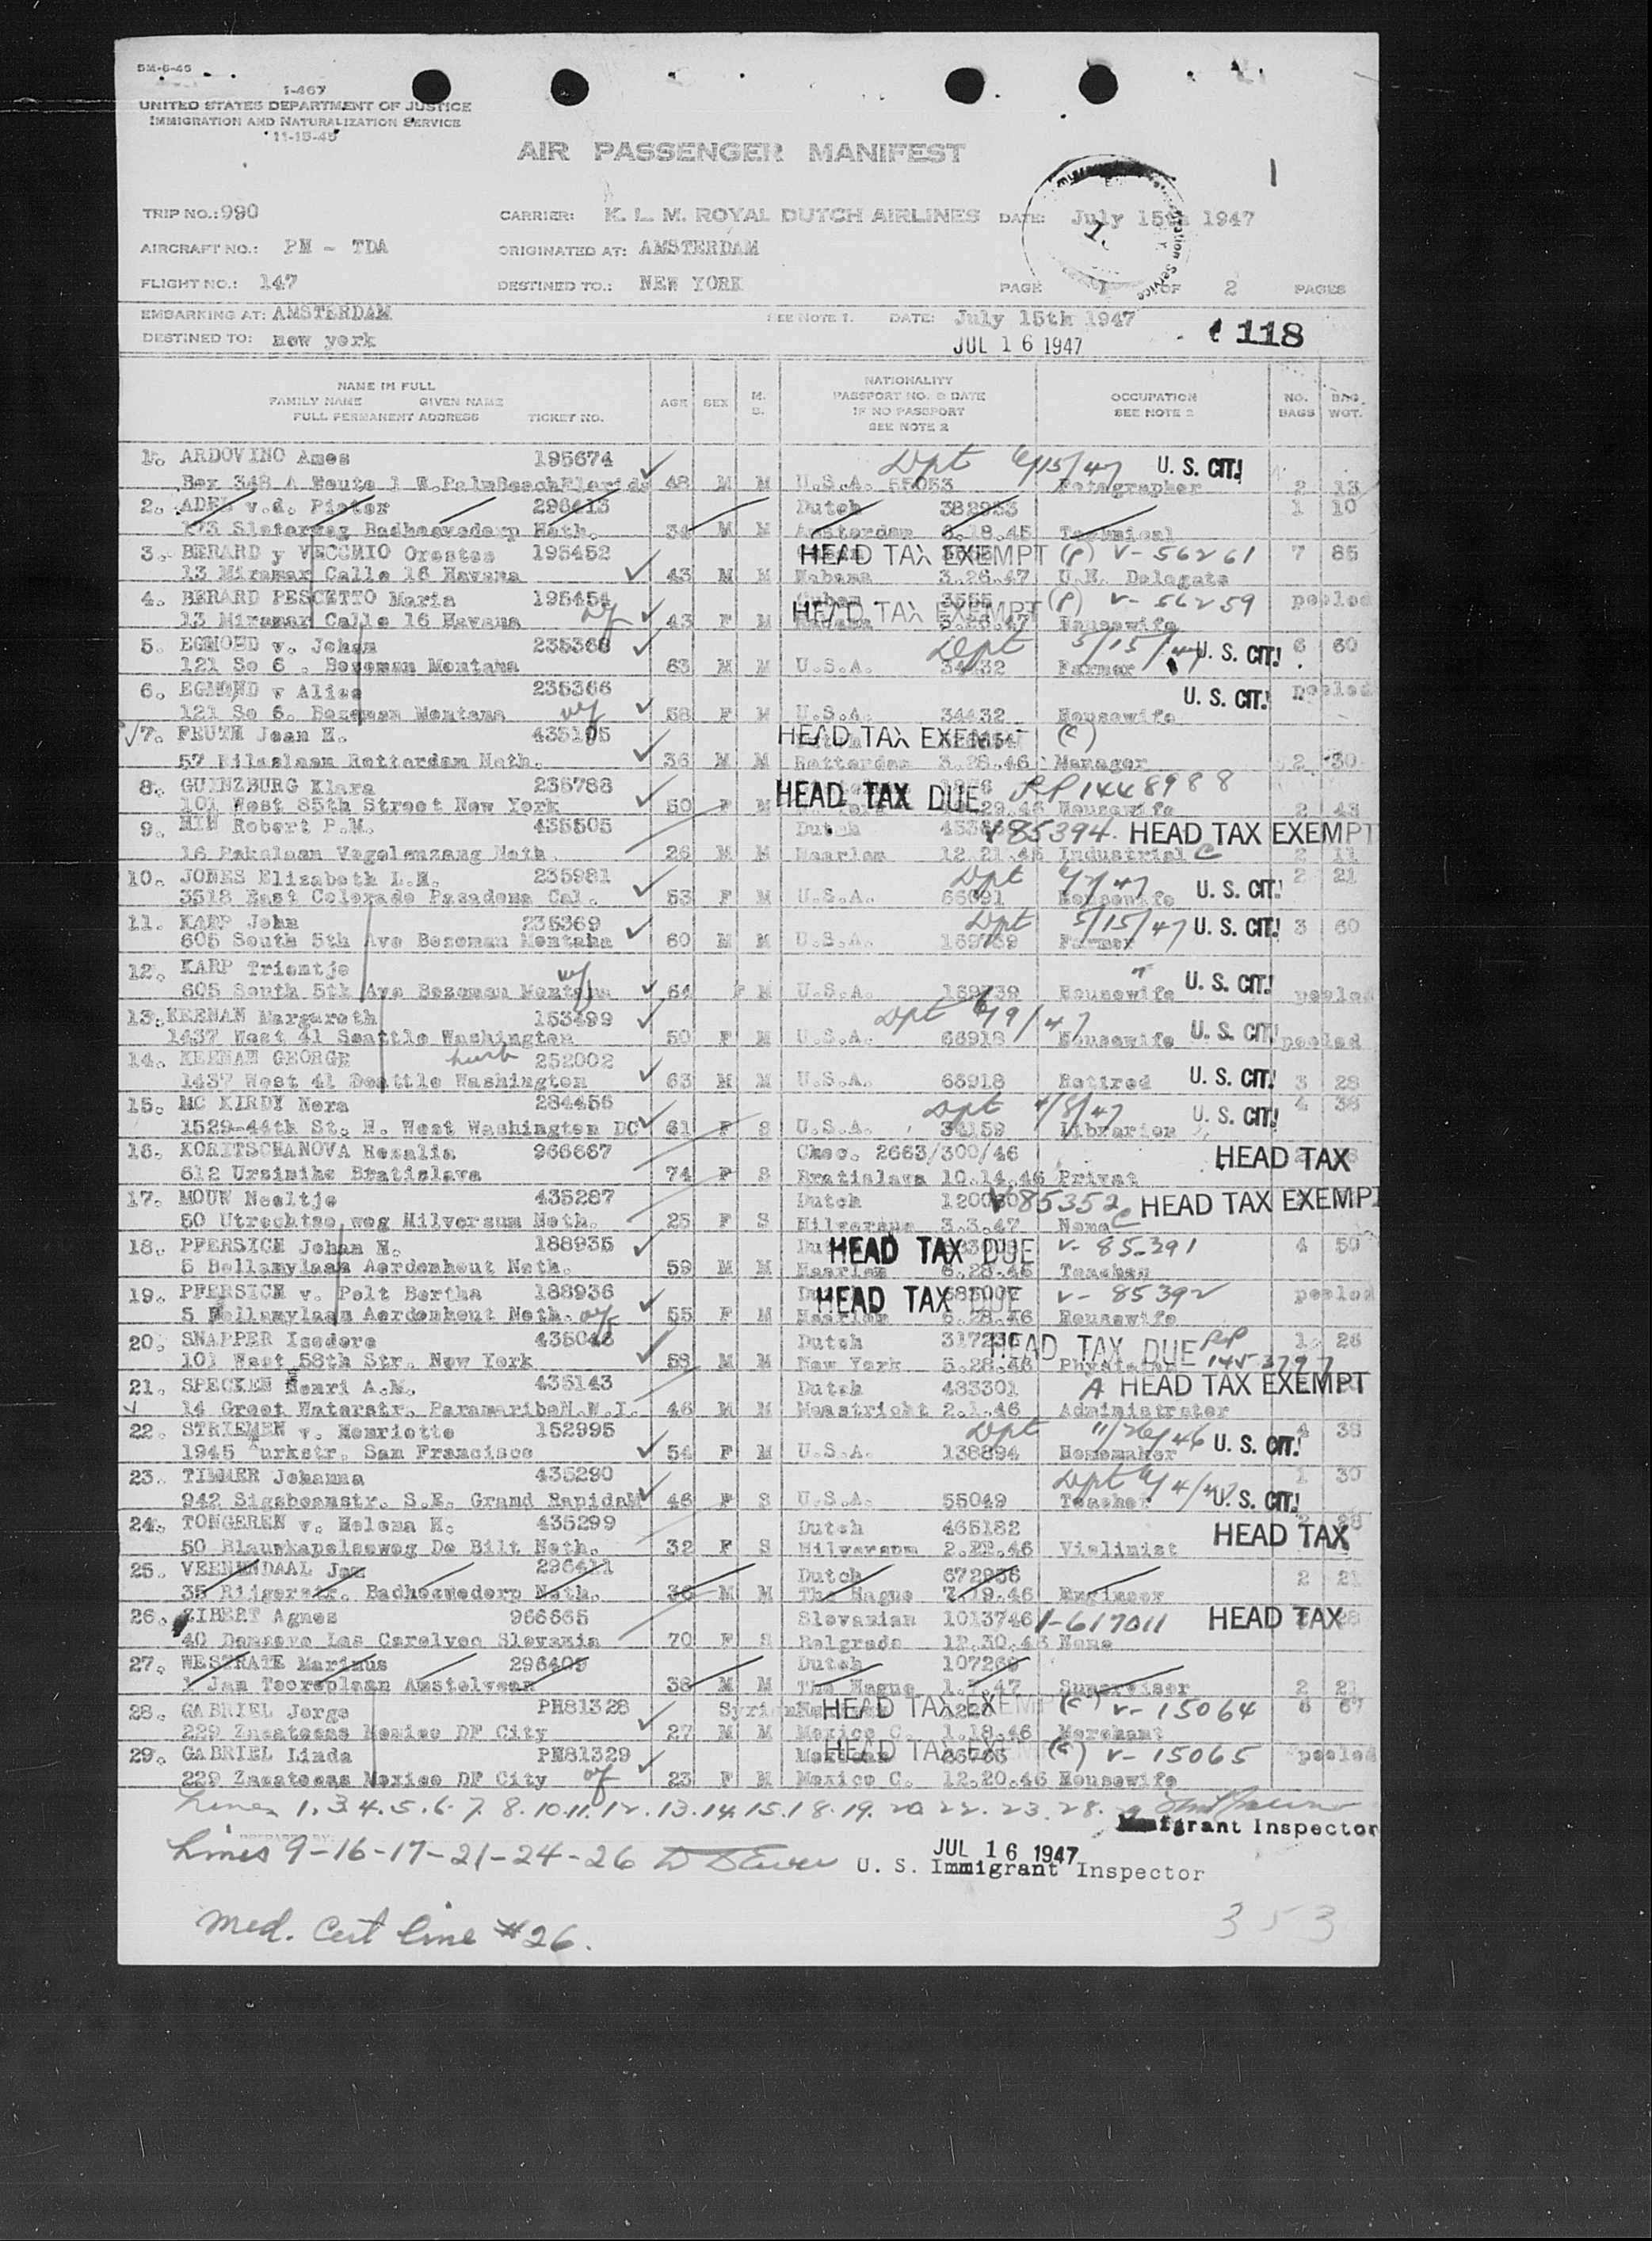 SM-6-46
I-467
UNITED STATES DEPARTMENT OF JUSTICE
IMMIGRATION AND NATURALIZATION SERVICE
11-15-45
AIR PASSENGER MANIFEST
1
TRIP NO.: 990 CARRIER: K. L. M. ROYAL DUTCH AIRLINES DATE: July 15th 1947
AIRCRAFT NO.: PH - TDA ORIGINATED AT: AMSTERDAM
FLIGHT NO.: 147 DESTINED TO.: NEW YORK PAGE 1 OF 2 PAGES
EMBARKING AT: AMSTERDAM SEE NOTE 1. DATE: July 15th 1947
DESTINED TO: new york JUL 16 1947 118
NAME IN FULL
FAMILY NAME GIVEN NAME
FULL PERMANENT ADDRESS TICKET NO. AGE SEX M. S. NATIONALITY PASSPORT NO. & DATE IF NO PASSPORT SEE NOTE 2 OCCUPATION SEE NOTE 2 NO. BAGS BAG. WGT.
1. ARDOVINO Ames 195674 Dpt 6/15/47 U. S. CIT!
Box 348 A Route 1 W.PalmBeachFlorida 48 M M U.S.A. 55053 Fotographer 2 13
2. ADEL v.d. Pieter 296413 Dutch 382953 1 10
173 Sloterweg Badhoevedorp Neth. 34 M M Amsterdam 6.18.45 Technical
3. BERARD y VECCHIO Orestes 195452 HEAD TAX EXEMPT (P) V-56261 7 85
13 Miramar Calle 16 Havana 43 M M Habana 3.26.47 U.N. Delegate
4. BERARD PESCETTO Maria 195454 Cuban 3555 HEAD TAX EXEMPT (P) V-56259 pooled
13 Miramar Calle 16 Havana wf 43 F M Housewife
5. EGMOND v. Johan 235368 Dpt 5/15/47 U. S. CIT! 6 60
121 So 6 . Bozeman Montana 63 M M U.S.A. 34432 Farmer
6. EGMOND v Alice 235366 U. S. CIT! pooled
121 So 6. Bozeman Montana wf 58 F M U.S.A. 34432 Housewife
7. FEUTH Jean H. 435195 HEAD TAX EXEMPT (C)
57 Rilaslaan Rotterdam Neth. 36 M M Rotterdam 3.28.46 Manager 2 30
8. GUINZBURG Klara 235788 HEAD TAX DUE RP1448988
101 West 85th Street New York 50 F M Housewife 2 43
9. MIN Robert P.M. 435505 Dutch V85394 HEAD TAX EXEMPT
16 Vogelenzang Neth. 26 M M Haarlem 12.21.45 Industrial C 2 11
10. JONES Elizabeth L.H. 235981 Dpt U. S. CIT! 2 21
3518 East Colorado Pasadena Cal. 53 F M U.S.A. 66091 Housewife
11. KARP John 235369 Dpt 5/15/47 U. S. CIT! 3 60
605 South 5th Ave Bozeman Montana 60 M M U.S.A. 169739 Farmer
12. KARP Trientje wf U. S. CIT!
605 South 5th Ave Bozeman Montana 64 F M U.S.A. 169739 Housewife pooled
13. KEENAN Margareth 153499 Dpt 6/9/47 U. S. CIT!
1437 West 41 Seattle Washington 50 F M U.S.A. 66918 Housewife pooled
14. KEENAN GEORGE husb 252002
1437 West 41 Seattle Washington 63 M M U.S.A. 66918 Retired U. S. CIT! 3 28
15. MC KIRDY Nora 284456 Dpt 4/8/47 U. S. CIT! 4 38
1529-44th St. N. West Washington DC 61 F S U.S.A. 34159 Librarion
16. KORITSCHANOVA Rosalia 966667 Chec. 2663/300/46 HEAD TAX
612 Ursinike Bratislava 74 F S Bratislava 10.14.46 Privat
17. MOUW Neeltje 435287 Dutch V85352 C HEAD TAX EXEMPT
50 Utrechtse weg Hilversum Neth. 25 F S Hilversum 3.3.47 None
18. PFERSICH Johan N. 188935 HEAD TAX DUE V-85391 4 50
5 Bellamylaan Aerdenhout Neth. 59 M M Haarlem 6.28.46 Teacher
19. PFERSICH v. Pelt Bertha 188936 HEAD TAX DUE V-85392 pooled
5 Bellamylaan Aerdenhout Neth. wf 55 F M Haarlem 6.28.46 Housewife
20. SNAPPER Isodore 435048 Dutch HEAD TAX DUE RP 1 26
101 West 58th Str. New York 58 M M New York 5.28.46 Physician 1453797
21. SPECKEN Henri A.M. 435143 Dutch 485301 A HEAD TAX EXEMPT
14 Groot Waterstr. ParamariboN.W.I. 46 M M Meastricht 2.1.46 Administrator
22. STRIEMEN v. Henriette 152995 Dpt 11/26/46 U. S. CIT! 4 38
1945 Turkstr. San Francisco 54 F M U.S.A. 138894 Homemaker
23. TIMMER Johanna 435290 Dpt U. S. CIT! 1 30
942 Sigsbeamstr. S.E. Grand RapidsM 46 F S U.S.A. 55049 Teacher
24. TONGEREN v. Helena H. 435299 Dutch 465182 HEAD TAX
50 Blauwkapelseweg De Bilt Neth. 32 F S Hilversum Violinist
25. VEENENDAAL Jan 296411 Dutch 672956 2 21
35 Rijgerstr. Badhoevedorp Neth. 36 M M The Hague 7.19.46 Engineer
26. ZIBERT Agnes 966665 Slovanian 1013746 I-617011 HEAD TAX
40 Slovania 70 F S Belgrade None
27. WESTRATE Marinus 296409 Dutch 107269
1 Jan Tooroplaan Amstelveen 38 M M The Hague 1.7.47 Supervisor 2 21
28. GABRIEL Jorge PH81328 HEAD TAX EXEMPT (C) V-15064 6 67
229 Zacatecas Mexico DF City 27 M M Mexico C. 1.18.46 Merchant
29. GABRIEL Linda PH81329 HEAD TAX EXEMPT (C) V-15065 pooled
229 Zacatecas Mexico DF City wf 23 F M Mexico C. 12.20.46 Housewife
Lines 1.3.4.5.6.7.8.10.11.12.13.14.15.18.19.20.22.23.28.29
Immigrant Inspector
Lines 9-16-17-21-24-26 JUL 16 1947
U. S. Immigrant Inspector
Med. Cert line #26.
353